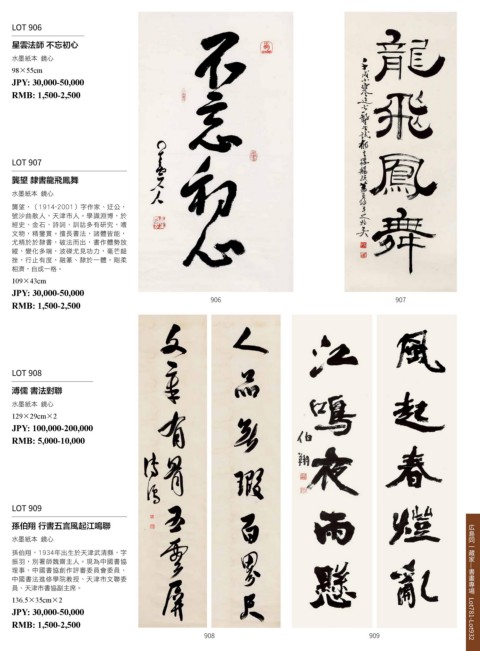 LOT 906
星雲法師 不忘初心
水墨紙本 鏡心
98×55cm
JPY: 30,000-50,000
RMB: 1,500-2,500
不忘初心
906
LOT 907
龔望 隸書龍飛鳳舞
水墨紙本 鏡心
龔望，(1914-2001) 字作家、迂公，
號沙曲散人，天津市人，學識淵博，於
經史、金石、詩詞、訓詁多有研究，嗜
文物，精鑒賞，擅長書法，諸體皆能，
尤精於於隸書，破法而出，書作體勢放
縱，變化多端，波磔尤見功力，毫芒超
捨，行止有度，融篆、隸於一體，剛柔
相濟，自成一格。
109×43cm
JPY: 30,000-50,000
RMB: 1,500-2,500
龍飛鳳舞
907
LOT 908
溥儒 書法對聯
水墨紙本 鏡心
129×29cm×2
JPY: 100,000-200,000
RMB: 5,000-10,000
人品 瑕百 尺
文章有骨五雲屏
溥儒
908
LOT 909
孫伯翔 行書五言風起江鳴聯
水墨紙本 鏡心
孫伯翔，1934年出生於天津武清縣，字
振羽，別署師魏齋主人。現為中國書協
理事、中國書協創作評審委員會委員、
中國書法進修學院教授、天津市文聯委
員、天津市書協副主席。
136.5×35cm×2
JPY: 30,000-50,000
RMB: 1,500-2,500
風起春燈亂
江鳴夜雨懸
伯翔
909
広島同一藏家—書畫專場 Lot781-Lot932